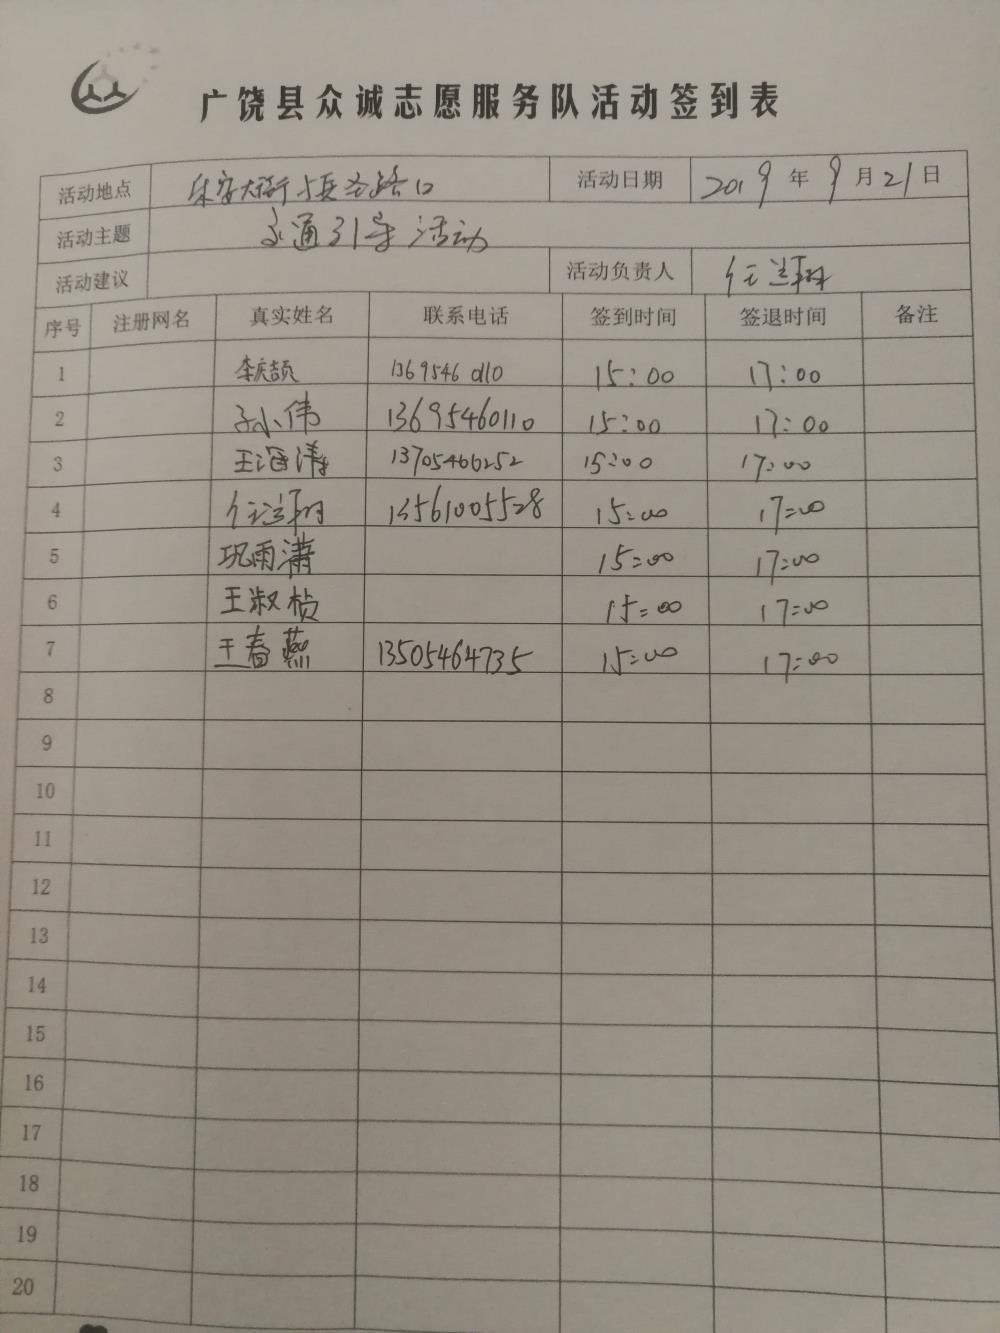 广饶县众诚志愿服务队活动签到表
活动地点 乐安大街 路口 活动日期 2019 年 9 月 21 日
活动主题 交通引导活动
活动建议 活动负责人 任兰翔
序号 注册网名 真实姓名 联系电话 签到时间 签退时间 备注
1 15:00 17:00
2 孙小伟 13695460110 15:00 17:00
3 王海涛 13705466252 15:00 17:00
4 任兰翔 13561005528 15:00 17:00
5 巩雨潇 15:00 17:00
6 王淑桢 15:00 17:00
7 王春燕 13505464735 15:00 17:00
8
9
10
11
12
13
14
15
16
17
18
19
20